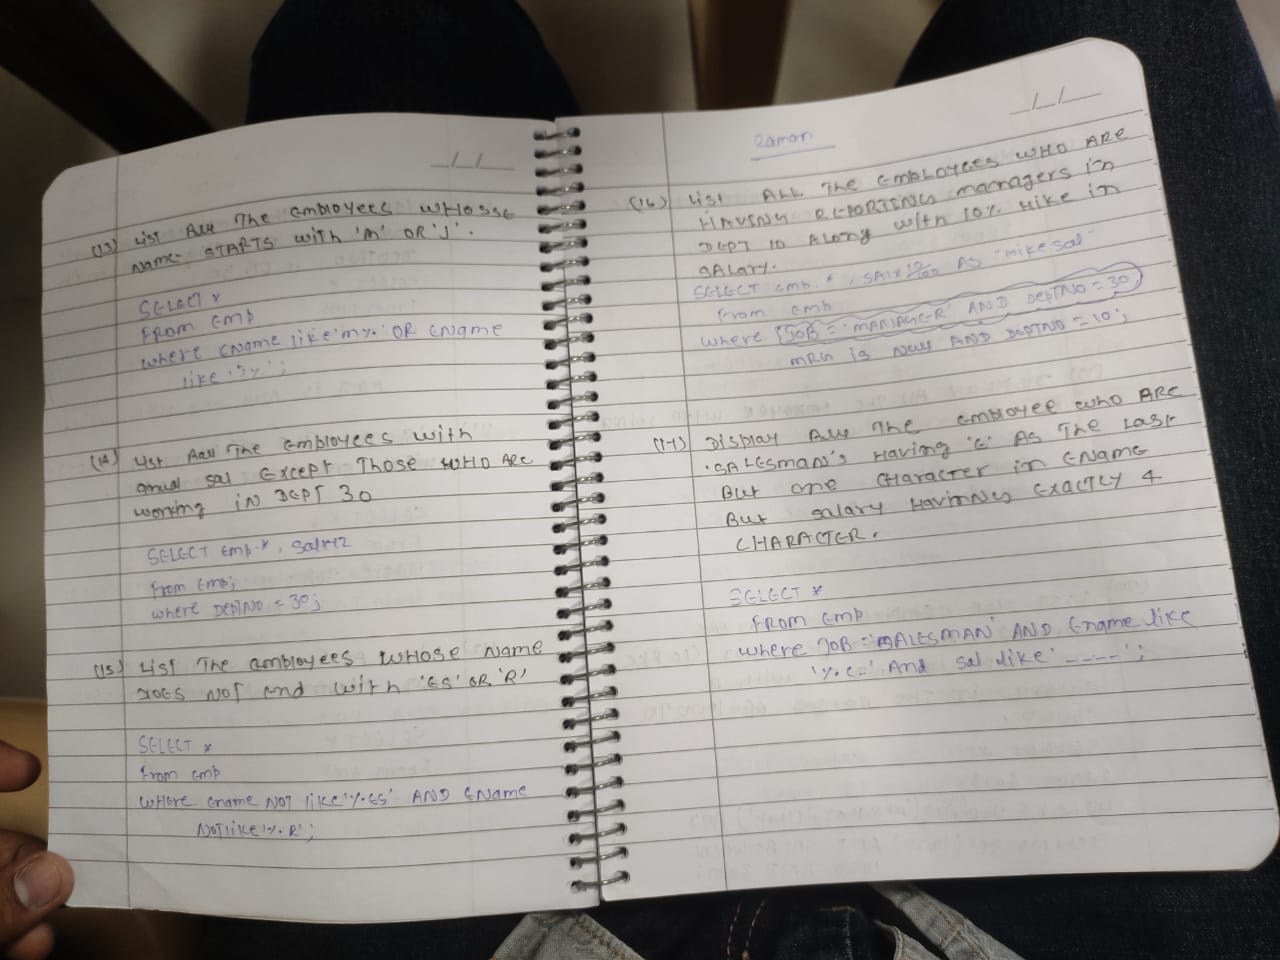 _/_/___
(13) List All The employees WHOSSE
Name STARTS with 'A' OR 'J'.
SELECT *
FROM Emp
where ENAME like 'm%' OR ENAME
like 'J%';
(14) List All The employees with
anual sal Except Those WHO ARE
working in DEPT 30
SELECT Emp.*, Sal*12
from Emp;
where DEPTNO = 30;
(15) List The employees WHOSE Name
DOES NOT end with 'ES' OR 'R'
SELECT *
from Emp
WHere ename NOT like '%ES' AND ENAME
NOT like '%R';
_/_/___
(16) List ALL The EMPLOYEES WHO ARE
HAVING REPORTING managers in
DEPT 10 Along with 10% HIKE in
SALARY.
SELECT Emp.*, SAl* 10/100 AS "Hike sal"
from Emp
where JOB = 'MANAGER' AND DeptNO = 30
MRG is Null AND DEPTNO = 10;
(17) Display All The EMPLOYEE who ARE
'SALESman's Having 'E' AS The LASt
But one CHARACTER in ENAME
But salary Having Exactly 4
CHARACTER.
SELECT *
FROM Emp
where JOB = 'SALESMAN' AND Ename like
'%E_' And sal like '____';